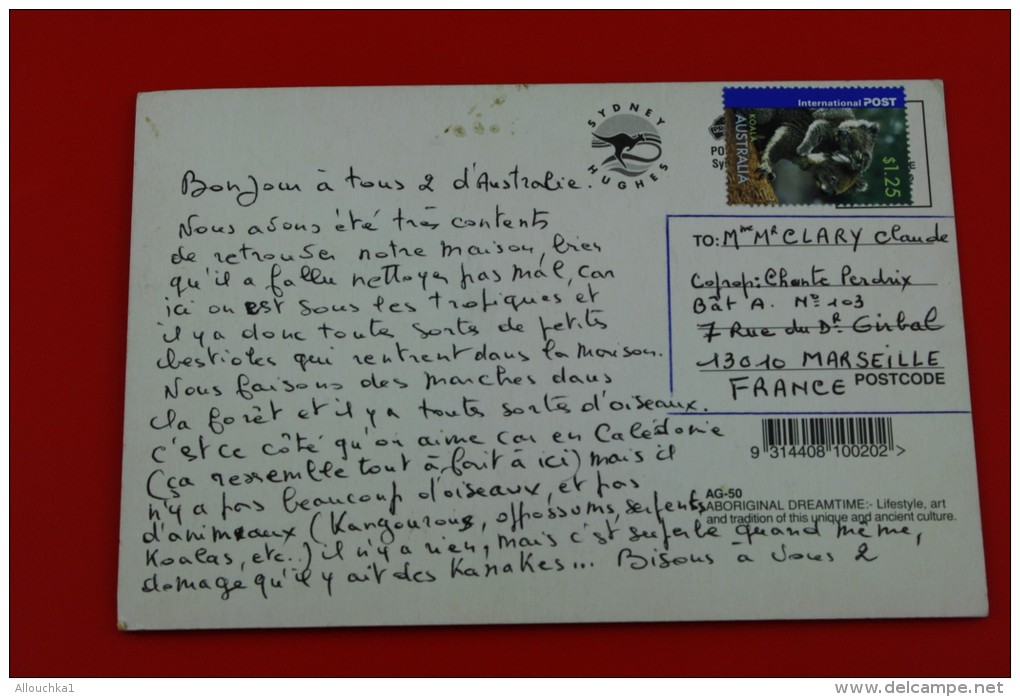 Bonjour à tous 2 d'Australie.
Nous avons été très contents
de retrouver notre maison, bien
qu'il a fallu nettoyer pas mal, car
ici on est sous les tropiques et
il y a donc toute sorte de petits
bestioles qui rentrent dans la maison.
Nous faisons des marches dans
la forêt et il y a toutes sortes d'oiseaux.
c'est ce côté qu'on aime car en Calédonie
(ça ressemble tout à fait à ici) mais il
n'y a pas beaucoup d'oiseaux, et pas
d'animaux (Kangourous, opossums, serpents
Koalas, etc..) il n'y a rien, mais c'est superbe quand même,
domage qu'il y ait des Kanakes... Bisous à vous 2
SYDNEY
HUGHES
International POST
KOALA
AUSTRALIA
$1.25
TO: Mme Mr CLARY Claude
Coprop: Chante Perdrix
Bât A. No 103
7 Rue du DR Girbal
13010 MARSEILLE
FRANCE POSTCODE
9 314408 100202 >
AG-50
ABORIGINAL DREAMTIME:- Lifestyle, art
and tradition of this unique and ancient culture.
Allouchka1
www.delcampe.net